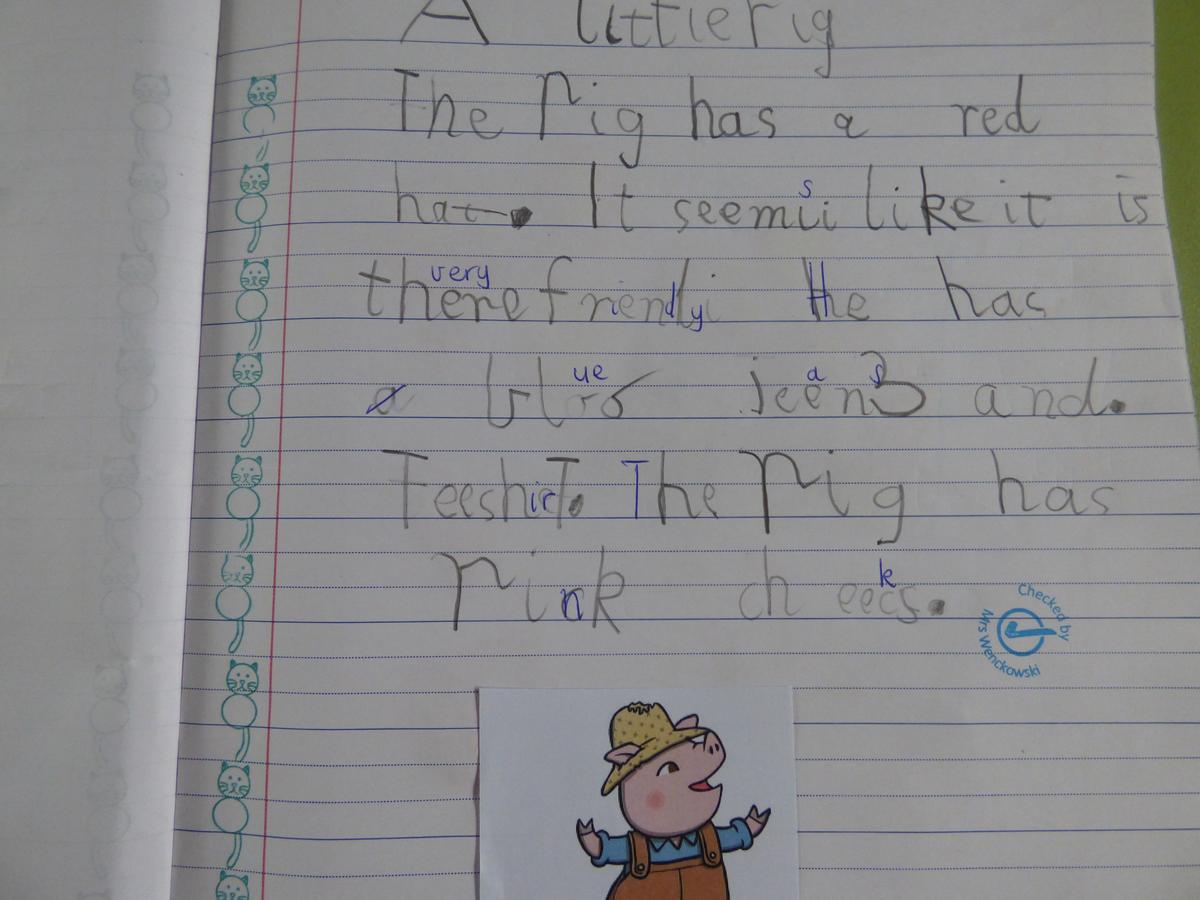 A little Pig
The Pig has a red
hat. It seems like it is
very
there friendly He has
ue a s
a blro jeens and.
TeeshirT. The Pig has
k
Pink cheecs.
Checked by
Mrs Wenckowski